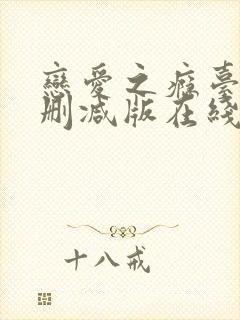 戀愛之癮臺
刪減版在綫
十八戒